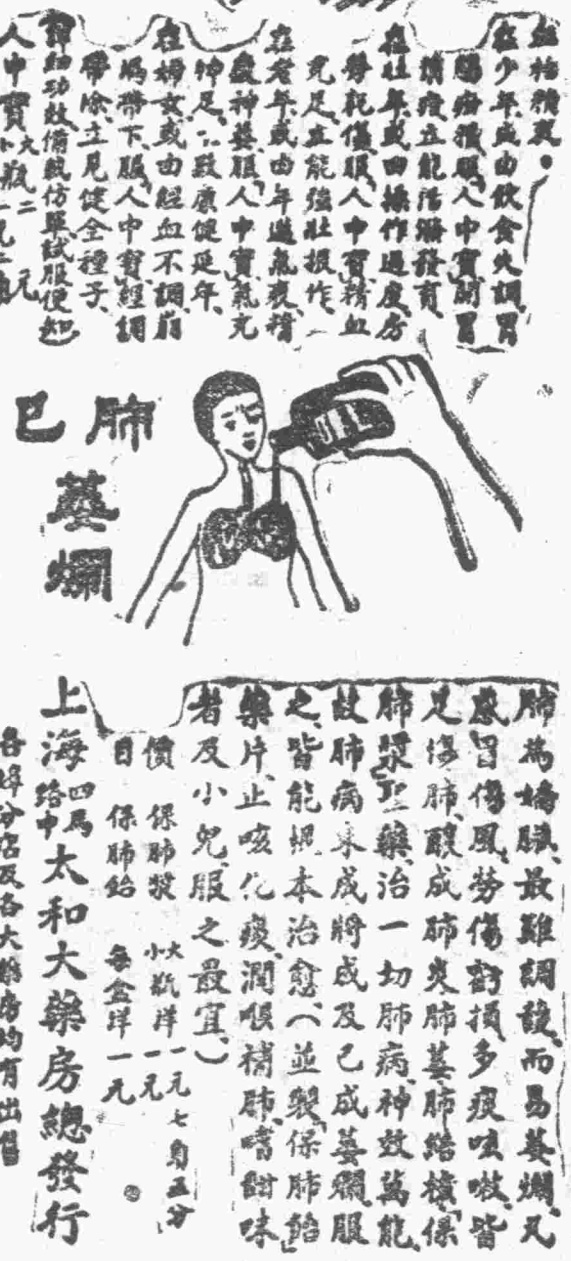 在少年或由飲食失調、胃
腸痞積、服人中寶、開胃
消痰、立能活潑發育、
在壯年或因操作過度、房
勞乾傷、服人中寶、精血
充足、立能強壯振作、
在老年或由年邁氣衰、精
神萎、服人中寶、氣充
神足、以致康健延年、
在婦女或由經血不調、屑
為帶下、服人中寶、經調
帶除、立見健全種子、
詳細功效備載仿單試服便知
人中寶 大瓶二元 小瓶一元二角
肺已
萎
爛
肺為嬌臟、最難調護、而易萎爛、凡
感冒傷風、勞傷虧損、多痰咳嗽、皆
足傷肺、釀成肺炎肺萎肺結核、保
肺漿聖藥、治一切肺病、神效萬能、
故肺病未成將成及已成萎爛、服
之、皆能根本治愈、（並製保肺飴
藥片、止咳化痰、潤喉補肺、嗜甜味
者及小兒服之最宜、）
價 保肺漿 大瓶洋一元七角五分 小瓶洋一元
目 保肺飴 每盒洋一元
上海四馬路中太和大藥房總發行
各埠分店及各大藥房均有出售